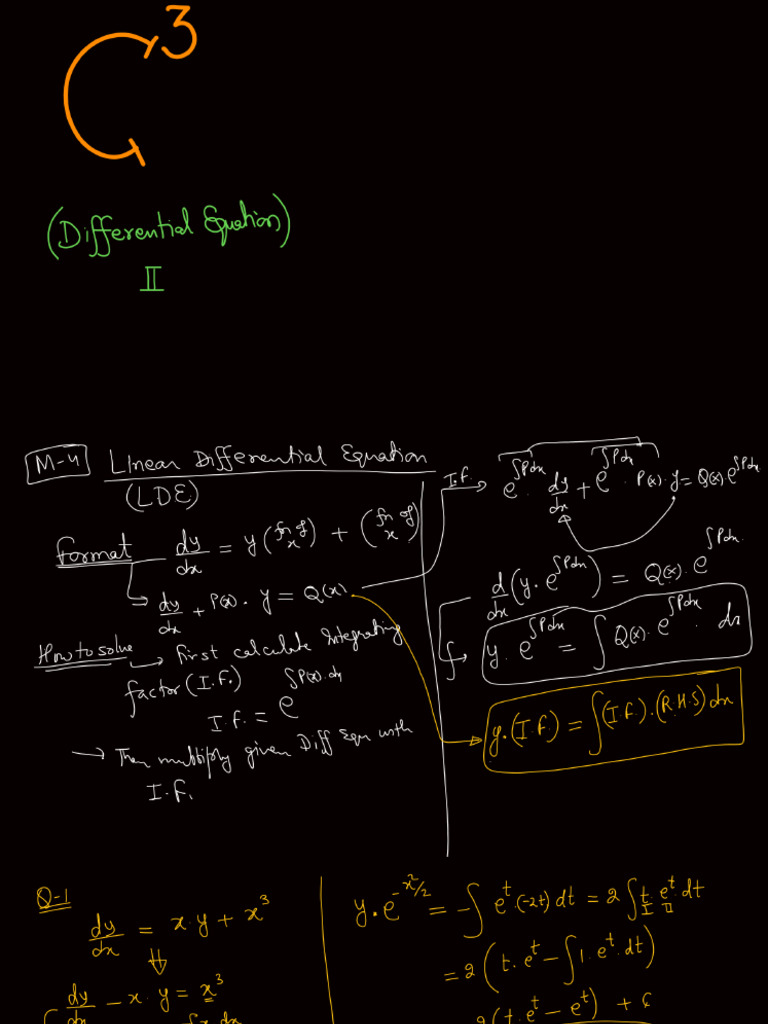 3
(Differential Equation)
II
M-4 Linear Differential Equation
(LDE)
Format dy/dx = y (fn of x) + (fn of x)
dy/dx + P(x) · y = Q(x)
How to solve → first calculate Integrating
factor (I.F.)
I.F. = e^∫P(x)·dx
→ Then multiply given Diff Equn with
I.F.
I.F. → e^∫Pdx · dy/dx + e^∫Pdx · P(x) · y = Q(x) · e^∫Pdx
d/dx (y · e^∫Pdx) = Q(x) · e^∫Pdx
∫ → y · e^∫Pdx = ∫ Q(x) · e^∫Pdx · dx
y · (I.F.) = ∫ (I.F.) · (R.H.S) dx
Q-1
dy/dx = x · y + x^3
⇓
dy/dx - x · y = x^3
∫x dx
y · e^-x²/2 = - ∫ e^t · (-2t) dt = 2 ∫ t · e^t · dt
I II
= 2 ( t · e^t - ∫ 1 · e^t · dt )
2 ( t · e^t - e^t ) + C